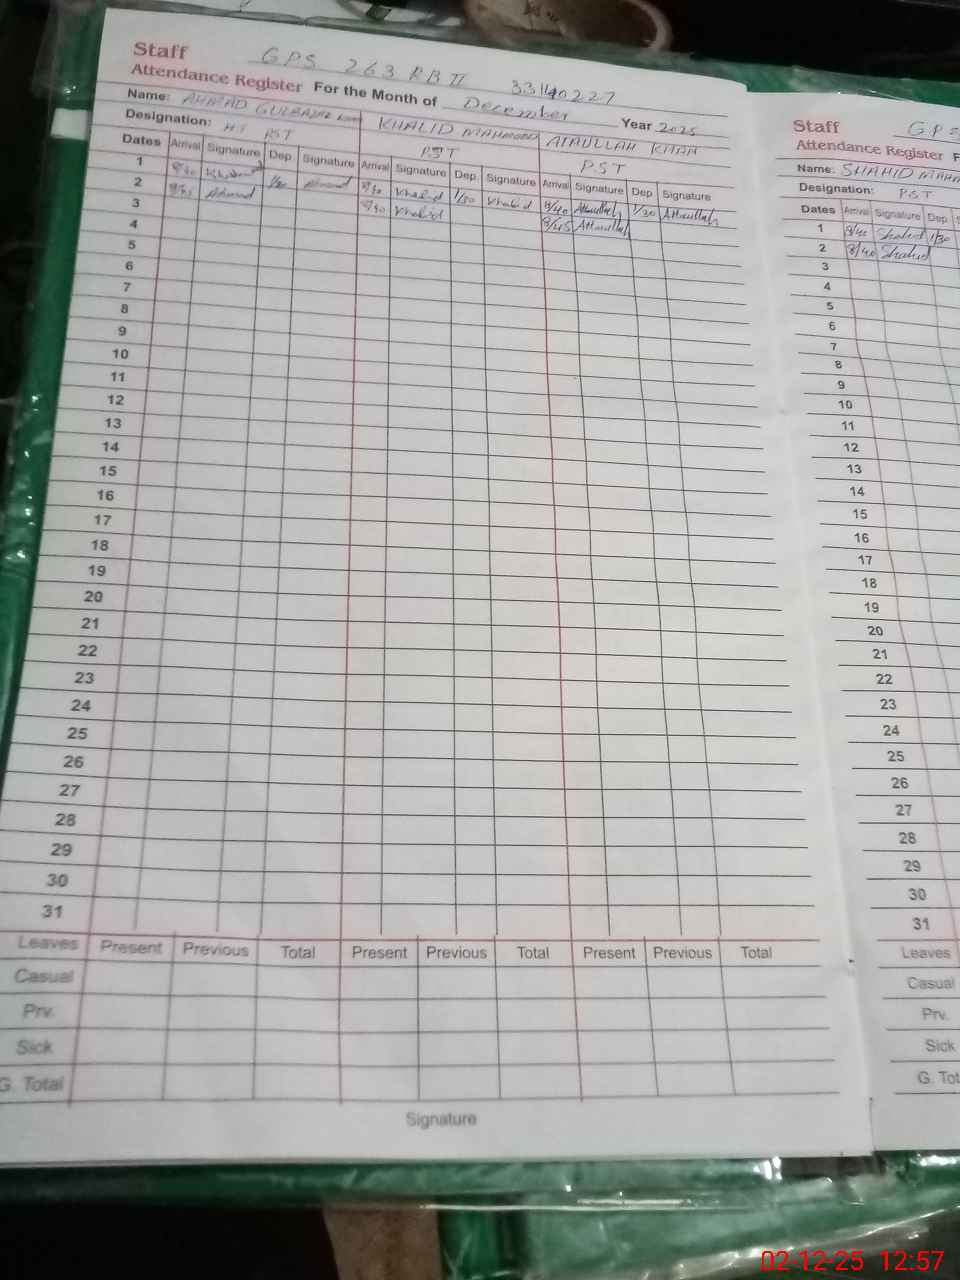 Staff GPS 263 RB II 33140227
Attendance Register For the Month of December Year 2025
Name: AHMAD GULBAZAR KHALID MAHMOOD ATAULLAH KHAN
Designation: PST PST PST
Dates Arrival Signature Dep. Signature Arrival Signature Dep. Signature Arrival Signature Dep. Signature
1 8/40 Khalid 1/30 Khalid 8/40 Attaullah 1/30 Attaullah
2 Ahmad 8/40 Khalid 8/45 Attaullah
3
4
5
6
7
8
9
10
11
12
13
14
15
16
17
18
19
20
21
22
23
24
25
26
27
28
29
30
31
Leaves Present Previous Total Present Previous Total Present Previous Total
Casual
Prv.
Sick
G. Total
Signature
Staff GPS
Attendance Register F
Name: SHAHID MAHM
Designation: PST
Dates Arrival Signature Dep. S
1 8/40 Shahid 1/30
2 8/40 Shahid
3
4
5
6
7
8
9
10
11
12
13
14
15
16
17
18
19
20
21
22
23
24
25
26
27
28
29
30
31
Leaves
Casual
Prv.
Sick
G. Tot
02-12-25 12:57